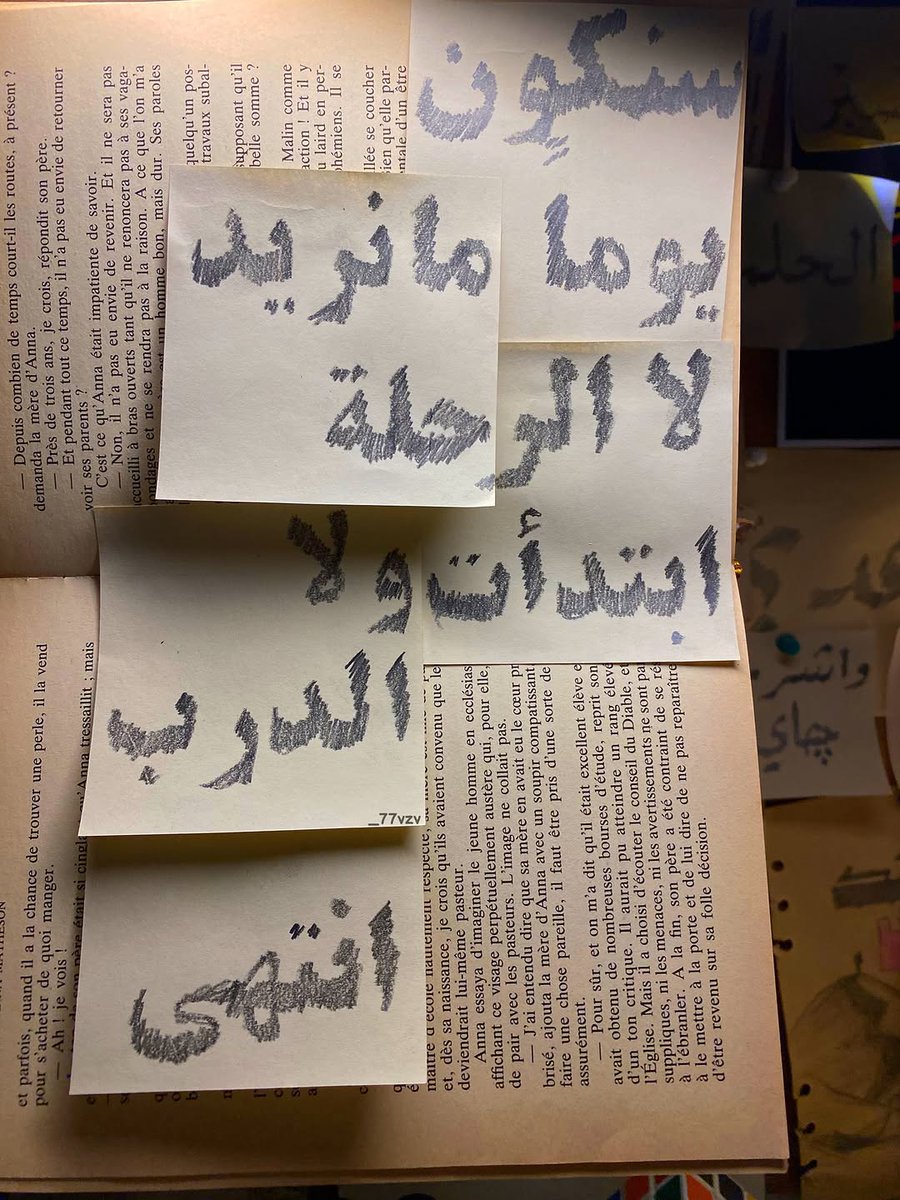 سنكون
يوما ما نريد
لا الرحلة
ابتدأت
ولا
الدرب
انتهى
_77vzv
چاي
— Depuis combien de temps court-il les routes, à présent ?
demanda la mère d'Anna.
— Près de trois ans, je crois, répondit son père.
— Et pendant tout ce temps, il n'a pas eu envie de retourner
voir ses parents ?
C'est ce qu'Anna était impatiente de savoir.
— Non, il n'a pas eu envie de revenir. Et il ne sera pas
accueilli à bras ouverts tant qu'il ne renoncera pas à ses vaga-
bondages et ne se rendra pas à la raison. A ce que l'on m'a
est un homme bon, mais dur. Ses paroles
quelqu'un pos-
travaux subal-
supposant qu'il
belle somme ?
Malin comme
action ! Et il y
u laird en per-
ohémiens. Il se
allée se coucher
ien qu'elle par-
entale d'un être
et parfois, quand il a la chance de trouver une perle, il la vend
pour s'acheter de quoi manger.
— Ah ! je vois !
son père était si cingla qu'Anna tressaillit ; mais
maître d'école hautement respecté,
et, dès sa naissance, je crois qu'ils avaient convenu que le
deviendrait lui-même pasteur.
Anna essaya d'imaginer le jeune homme en ecclésias
affichant ce visage perpétuellement austère qui, pour elle,
de pair avec les pasteurs. L'image ne collait pas.
— J'ai entendu dire que sa mère en avait eu le cœur
brisé, ajouta la mère d'Anna avec un soupir compatissant.
faire une chose pareille, il faut être pris d'une sorte de
assurément.
— Pour sûr, et on m'a dit qu'il était excellent élève e
avait obtenu de nombreuses bourses d'étude, reprit son
d'un ton critique. Il aurait pu atteindre un rang élevé
l'Eglise. Mais il a choisi d'écouter le conseil du Diable, et
suppliques, ni les menaces, ni les avertissements ne sont pa
à l'ébranler. A la fin, son père a été contraint de se ré
à le mettre à la porte et de lui dire de ne pas reparaître
d'être revenu sur sa folle décision.